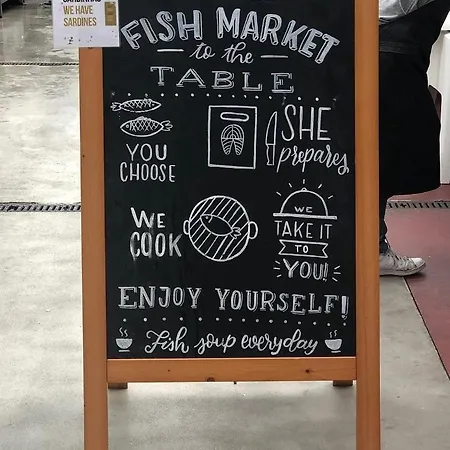 WE HAVE
SARDINES
FISH MARKET
to the
TABLE
YOU
CHOOSE
SHE
prepares
WE
COOK
WE
TAKE IT
TO
YOU!
ENJOY YOURSELF!
Fish soup everyday